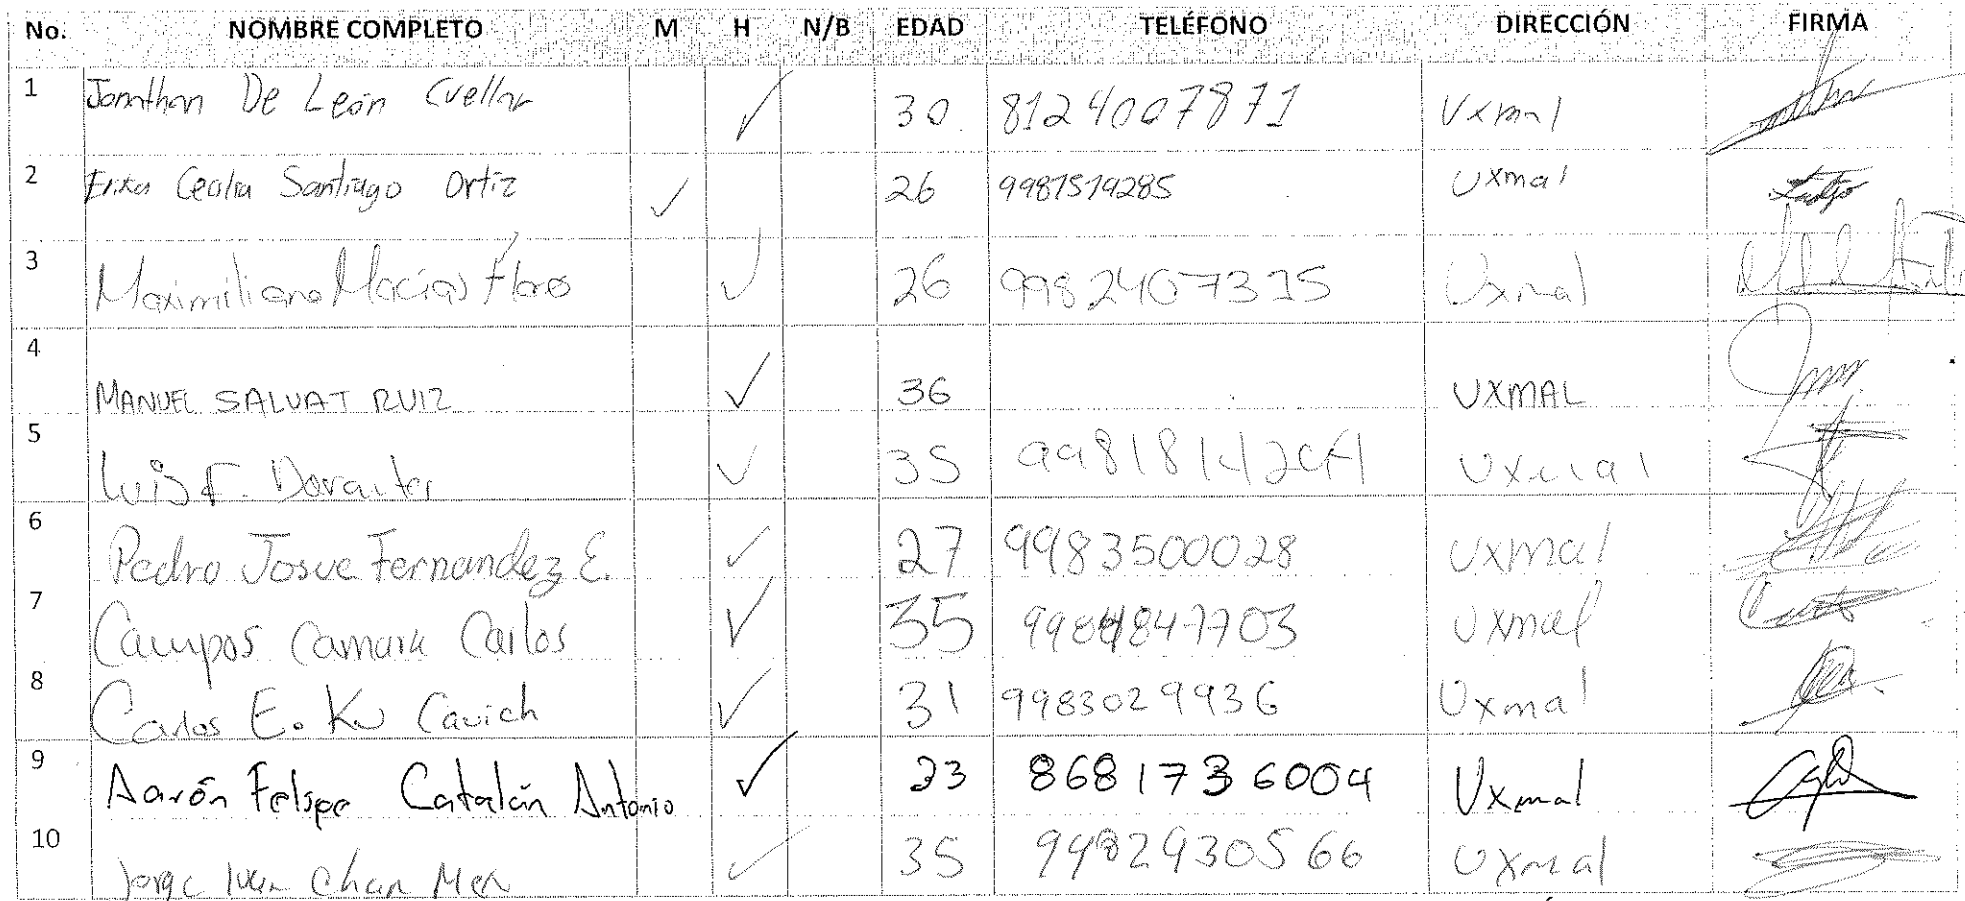 No. NOMBRE COMPLETO M H N/B EDAD TELÉFONO DIRECCIÓN FIRMA
1 Jonathan De León Cuellar ✓ 30 8124007871 Uxmal
2 Erika Cecilia Santiago Ortiz ✓ 26 9981519285 Uxmal
3 Maximiliano Macías Flores ✓ 26 9982407315 Uxmal
4 MANUEL SALVAT RUIZ ✓ 36 UXMAL
5 Luis F. ✓ 35 Uxmal
6 Pedro Josue Fernandez E. ✓ 27 9983500028 Uxmal
7 Campos Camara Carlos ✓ 35 Uxmal
8 Carlos E. Ku Cauich ✓ 31 9983029936 Uxmal
9 Aarón Felipe Catalán Antonio ✓ 23 8681736004 Uxmal
10 Jorge Ivan Chan Mex ✓ 35 Uxmal